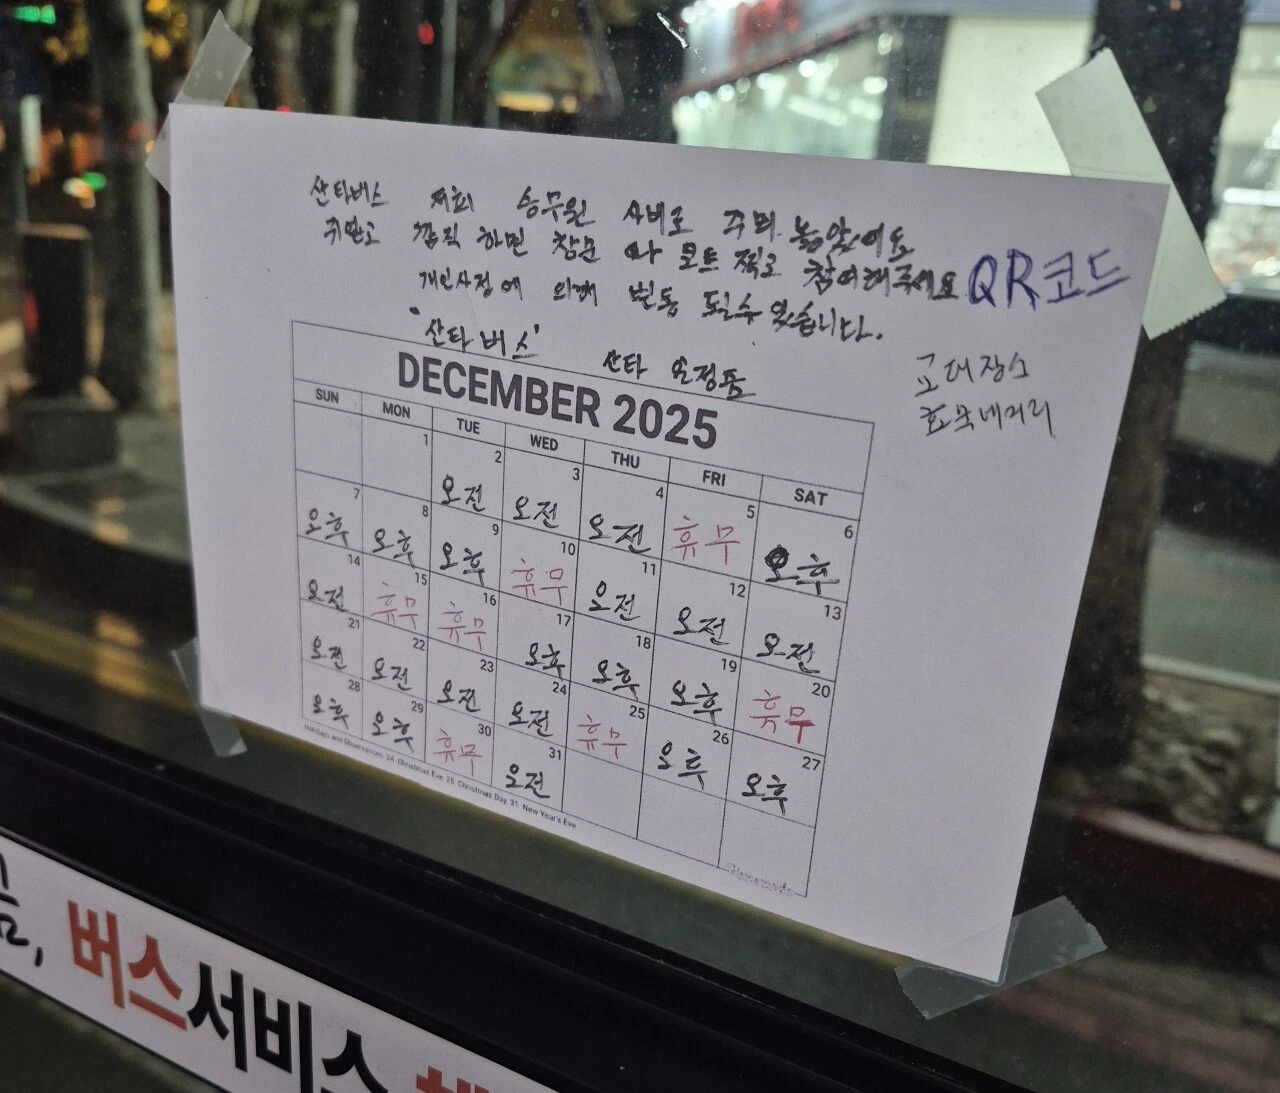 산타버스 저희 승무원 사비로 주며 놓았어요
하면 창문 와 찍고 참여해주세요 QR코드
개인사정에 의해 변동 될수 있습니다.
'산타버스' 산타
고대장소
DECEMBER 2025
SUN MON TUE WED THU FRI SAT
1 2 3 4 5 6
오전 오전 오전 휴무 오후
7 8 9 10 11 12 13
오후 오후 오후 휴무 오전 오전 오전
14 15 16 17 18 19 20
오전 휴무 휴무 오후 오후 오후 휴무
21 22 23 24 25 26 27
오전 오전 오전 오전 휴무 오후 오후
28 29 30 31
오후 오후 휴무 오전
Holidays and Observances: 24 Christmas Eve, 25 Christmas Day, 31 New Year's Eve
, 버스서비스